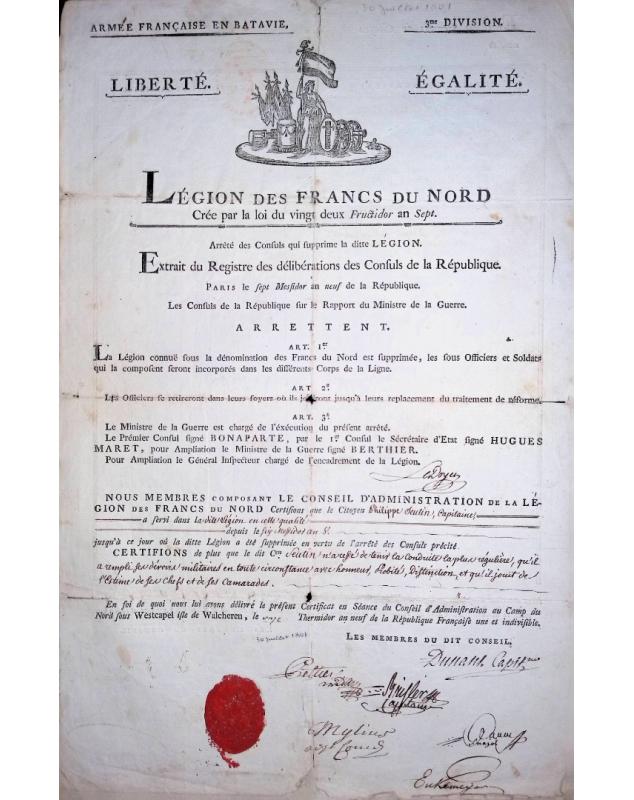 30 Juillet 1801
ARMÉE FRANÇAISE EN BATAVIE,
3me DIVISION.
LIBERTÉ.
ÉGALITÉ.
LÉGION DES FRANCS DU NORD
Crée par la loi du vingt deux Fructidor an Sept.
Arrêté des Conſuls qui ſupprime la ditte LÉGION.
Extrait du Regiſtre des délibérations des Conſuls de la République.
PARIS le ſept Meſſidor an neuf de la République.
Les Conſuls de la République ſur le Rapport du Miniſtre de la Guerre.
ARRETTENT.
ART. 1er
La Légion connuë ſous la dénomination des Francs du Nord est ſupprimée, les ſous Officiers et Soldats
qui la compoſent ſeront incorporés dans les différents Corps de la Ligne.
ART 2e
Les Officiers ſe retireront dans leurs foyers où ils jouiront juſqu'à leurs replacement du traitement de réforme.
ART. 3e
Le Miniſtre de la Guerre est chargé de l'éxécution du préſent arrêté.
Le Prémier Conſul ſigné BONAPARTE, par le 1er Conſul le Sécrétaire d'Etat ſigné HUGUES
MARET, pour Ampliation le Miniſtre de la Guerre ſigné BERTHIER.
Pour Ampliation le Général Inſpecteur chargé de l'encadrement de la Légion.
NOUS MEMBRES COMPOSANT LE CONSEIL D'ADMINISTRATION DE LA LÉ-
GION DES FRANCS DU NORD Certifions que le Citoyen Philippe Seulin, Capitaine
a ſervi dans la dite Légion en cette qualité
depuis le six Messidor an 8e
juſqu'à ce jour où la ditte Légion a été ſupprimée en vertu de l'arrêté des Conſuls précité.
CERTIFIONS de plus que le dit Cen Seulin n'a cessé de tenir la conduite la plus régulière, qu'il
a rempli ses devoirs militaires en toute circonstance avec honneur, Probité, Distinction, et qu'il jouit de
l'Estime de ses chefs et de ses Camarades.
En foi de quoi nous lui avons délivré le préſent Certificat en Séance du Conſeil d'Adminiſtration au Camp du
Nord ſous Westcapel iſle de Walcheren, le onze Thermidor an neuf de la République Françaiſe une et indiviſible.
30 juillet 1801
LES MEMBRES DU DIT CONSEIL,
Dunant Capitne
Capitaine
Mylius